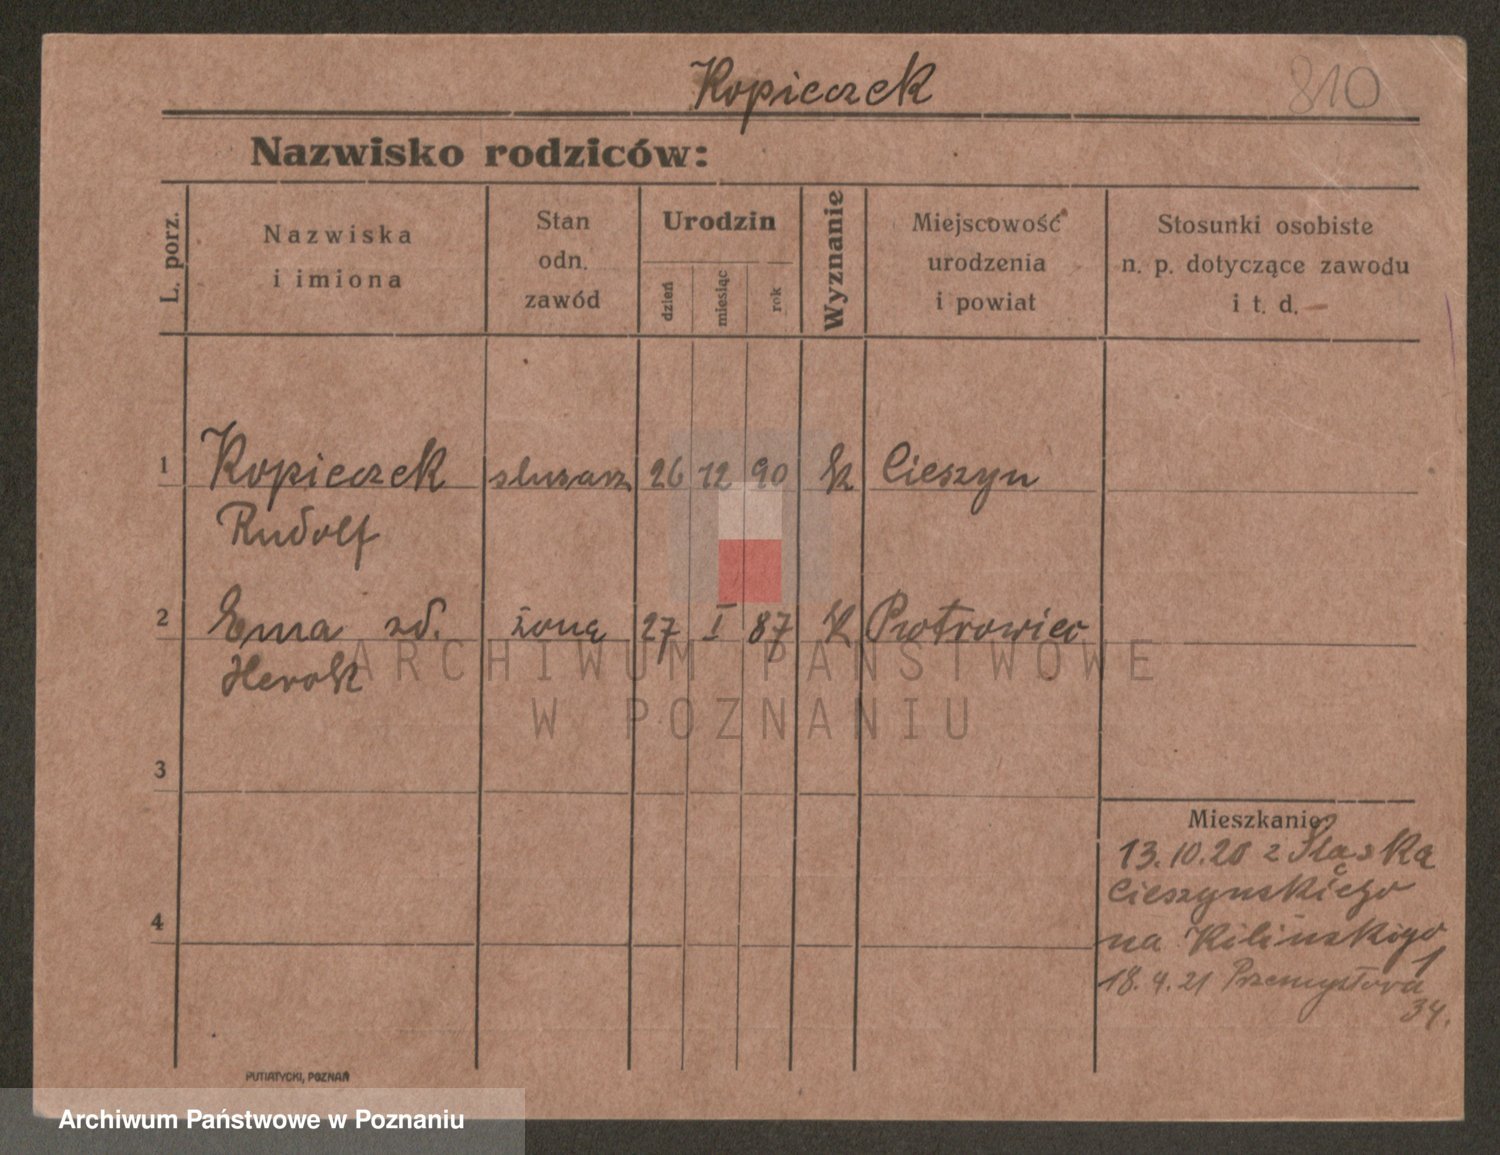 Kopieczek
810
Nazwisko rodziców:
L. porz.
Nazwiska
i imiona
Stan
odn.
zawód
Urodzin
dzień
miesiąc
rok
Wyznanie
Miejscowość
urodzenia
i powiat
Stosunki osobiste
n. p. dotyczące zawodu
i t. d.
1 Kopieczek ślusarz 26 12 90 k Cieszyn
Rudolf
2 Ema zd. żona 27 I 87 K Piotrowiec
Herok
ARCHIWUM PAŃSTWOWE
W POZNANIU
3
Mieszkanie
13.10.20 z Śląska
Cieszyńskiego
4
na Kilińskigo
1
18.4.21 Przemysłowa
34.
PUTIATYCKI, POZNAŃ
Archiwum Państwowe w Poznaniu